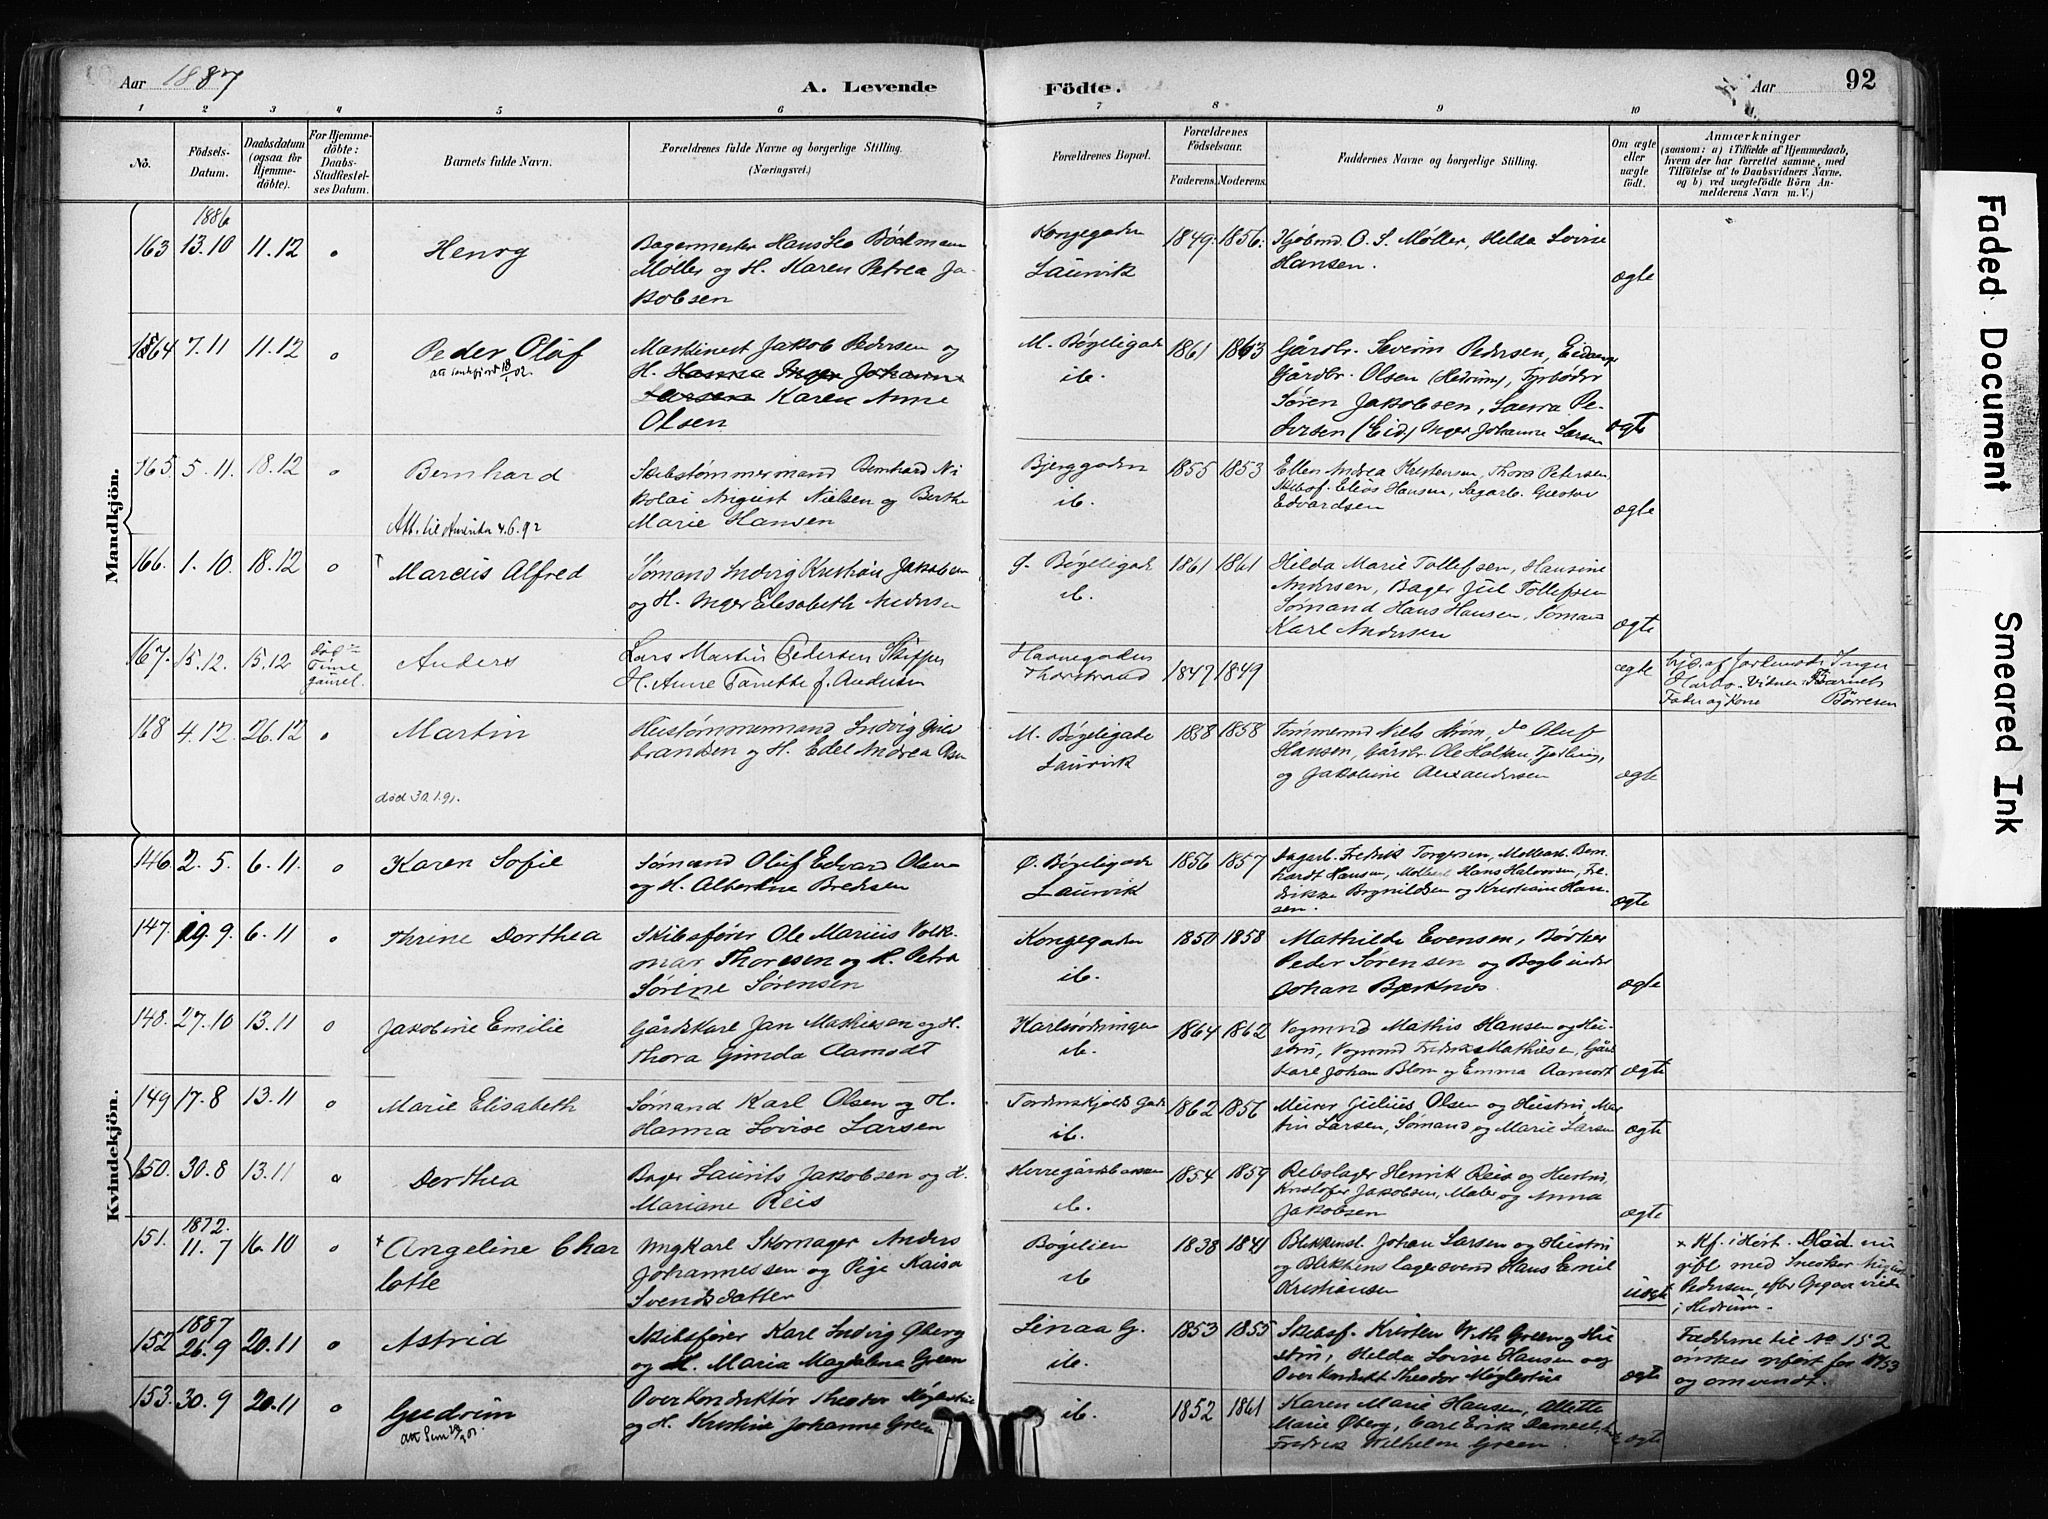 Aar 1887
A. Levende
Födte.
Aar
92
1 2 3 4 5 6 7 8 9 10 11.
No.
Födsels-Datum.
Daabsdatum (ogsaa for Hjemmedöbte).
For Hjemmedöbte: Daabs-Stadfæstelses Datum.
Barnets fulde Navn.
Forældrenes fulde Navne og borgerlige Stilling. (Næringsvei.)
Forældrenes Bopæl.
Forældrenes Födselsaar.
Faderens. Moderens.
Faddernes Navne og borgerlige Stilling.
Om ægte eller uægte födt.
Anmærkninger
(saasom: a) i Tilfælde af Hjemmedaab,
hvem der har forrettet samme, med
Tilföielse af to Daabsvidners Navne,
og b) ved uægtefödte Börn Anmelderens Navn m. V.)
Mandkjön.
1886
163 13.10 11.12 Henry
Bagermester Hans Bøckmann
Møller og H. Karen Petrea Jakobsen
Kongegaden
Laurvik
1849. 1856.
Kjøbmd. O. S. Møller, Hilda Lovise
Hansen.
ægte
164 7.11 11.12 Peder Oluf
Maskinest Jakob Pedersen og
H. Hanna Inger Johanne
Larsen Karen Anne
Olsen
M. Bøgeligade
ib.
1861 1863
Gårdbr. Severin Pedersen, Eidanger
Gårdbr. Olsen (Hedrum), Fyrbøder
Søren Jakobsen, Laura Pedersen (Eid) Inger Johanne Larsen
ægte
165. 5.11. 18.12 Bernhard
Att. til Amerika 4.6.92
Skibstømmermand Bernhard Nikolai August Nielsen og Berthe
Marie Hansen
Bjerggaden
ib.
1855 1853
Ellen Andrea Kristensen, Thora Petersen
Skibsf. Elias Hansen, Sagarb. Gustav
Edvardsen
ægte
166. 1.10. 18.12 Marcus Alfred
Sømand Ludvig Kristian Jakobsen
og H. Inger Elisabeth Andersen
Ø. Bøgeligade
ib.
1861 1861
Hilda Marie Tollefsen, Hansine
Andersen, Bager Jul Tollefsen
Sømand Hans Hansen, Sømand
Karl Andersen
ægte
167. 15.12. 15.12 Anders
Lars Martin Pedersen Skipper
H. Anne Tanette f. Andersen
Havnegaden
Thorstrand
1847 1849
ægte
168 4.12. 26.12 Martin
død 30.1.91.
Hustømmermand Ludvig Gulbrandsen og H. Edel Andrea Olsen
M. Bøgeligade
Laurvik
1858 1858
Tømmermd Niels Strøm, do Oluf
Hansen, Gårdbr. Ole Holsen, Tjølling,
og Jakobine Alexandersen
ægte
Kvindekjön.
146. 2.5. 6.11. Karen Sofie
Sømand Oluf Edvard Olsen
og H. Albertine Bredesen
Ø. Bøgeligade
Laurvik
1856 1857
Sagarb. Fredrik Torgersen, Møllearb. Bernhardt Hansen, Hans Halvorsen, Fredrikke Brynildsen og Kristiane Hansen.
ægte
147. 19.9. 6.11 Thrine Dorthea
Skibsfører Ole Marius Volkmar Thoresen og H. Petra
Sørine Sørensen
Kongegaden
ib.
1850 1858
Mathilde Evensen, Bødker
Peder Sørensen og Bogbinder
Johan Bjerknes
ægte
148. 27.10 13.11 Jakobine Emilie
Gårdskarl Jan Mathiesen og H.
Thora Gunda Aamodt
Karlsrødningen
ib.
1864 1862
Vognmd Mathis Hansen og Hustru, Vognmd Fredrik Mathiesen, Gårdskarl Johan Blom og Emma Aamodt
ægte
149 17.8 13.11 Marie Elisabeth
Sømand Karl Olsen og H.
Hanna Lovise Larsen
Tordenskjolds Gade
ib.
1862 1856
Murer Julius Olsen og Hustru, Martin Larsen, Sømand og Marie Larsen
ægte
150. 30.8 13.11 Dorthea
Bager Laurits Jakobsen og H.
Mariane Reis
Herregårdsbakken
ib.
1854 1859
Rebslager Henrik Reis og Hustru,
Kristofer Jakobsen, Maler og Anna
Jakobsen
ægte
1872.
151. 11.7 16.10 + Angeline Charlotte
Ungkarl Skomager Anders
Johannessen og Pige Kaisa
Svendsdatter
Bøgelien
ib
1838 1841
Blikkensl. Johan Larsen og Hustru
og Blikkenslagersvend Hans Emil
Kristiansen
uægte
gift med Snedker
Pedersen, efter Opgave viede
i Hedrum.
1887
152 26.9 20.11 Astrid
Skibsfører Karl Ludvig Øberg
og H. Maria Magdalena Green
Linaa G.
ib.
1853 1855
Skibsf. Kristen With Green og Hustru, Hilda Lovise Hansen og
Overkonduktør Theodor Møglestue
ægte
Fadderne til No 152
ønskes opført for 153
og omvendt.
153. 30.9 20.11 Gudrun
Overkonduktør Theodor Møglestue
og H. Kristine Johanne Green
ib.
1852 1861
Karen Marie Hansen, Alette
Marie Øberg, Carl Erik
Fredrik Wilhelm Green.
ægte
Faded Document
Smeared Ink